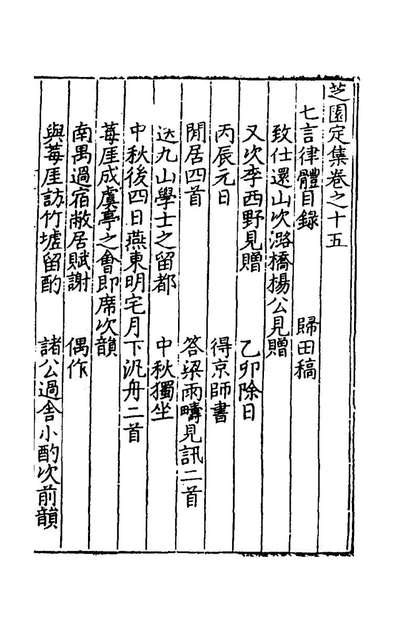 芝園定集卷之十五
七言律體目錄　歸田稿
致仕還山次潞橋揚公見贈
又次李西野見贈　乙卯除日
丙辰元日　得京師書
閒居四首　答梁雨疇見訊二首
送九山學士之留都　中秋獨坐
中秋後四日燕東明宅月下汎舟二首
莓厓成虞亭之會即席次韻
南禺過宿敝居賦謝　偶作
與莓厓訪竹墟留酌　諸公過舍小酌次前韻